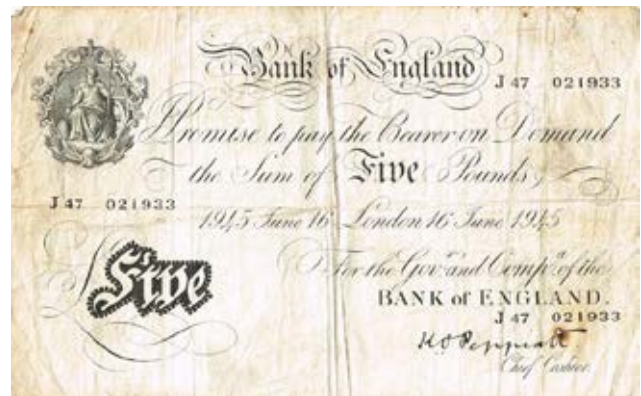 Bank of England
J 47 021933
I Promise to pay the Bearer on Demand
the Sum of Five Pounds
J 47 021933
1945 June 16 London 16 June 1945
For the Gov.r and Comp.a of the
Five
BANK of ENGLAND.
J 47 021933
K O Peppiatt
Chief Cashier.